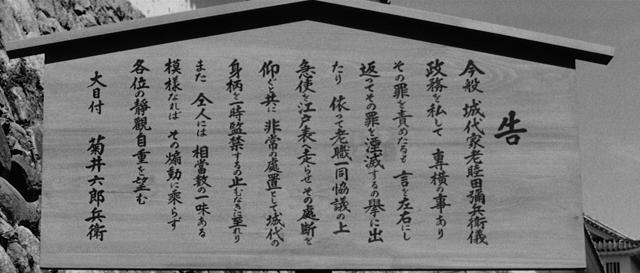 告
今般 城代家老睦田彌兵衛儀
政務を私して 専横の事あり
その罪を責めたるも 言を左右にし
返つてその罪を湮滅するの挙に出
たり 依って老職一同協議の上
急使を江戸表へ走らせ その處断を
仰ぐと共に 非常の處置として城代の
身柄を一時監禁するの止むなきに至れり
また 仝人には 相當数の一味ある
模様なれば その煽動に乗らず
各位の靜觀自重を望む
大目付 菊井六郎兵衛